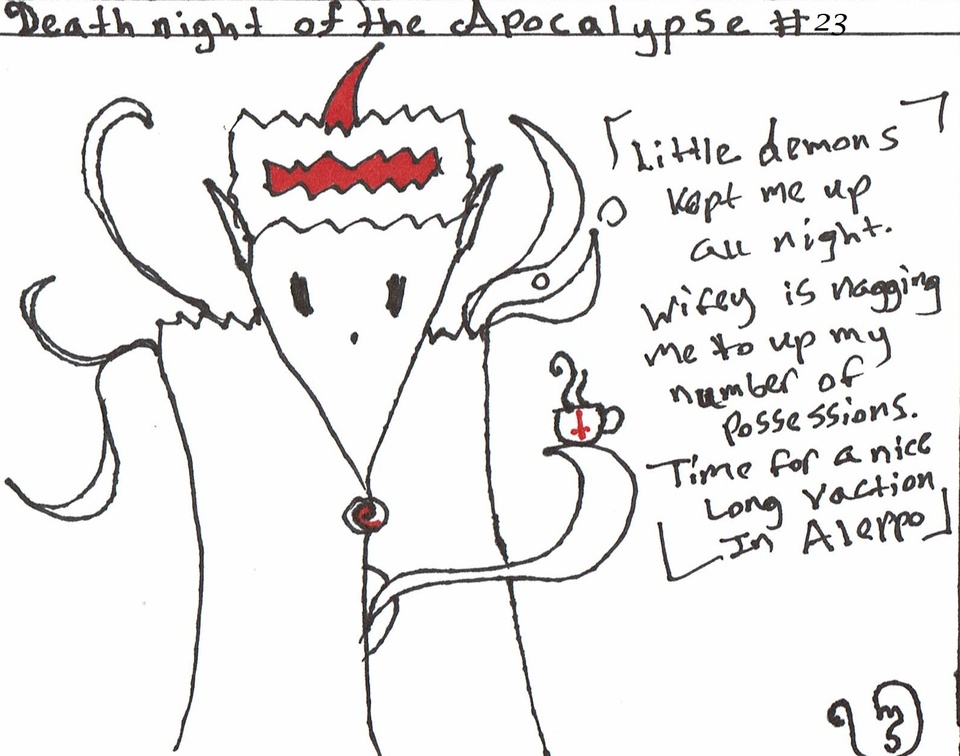 Death night of the Apocalypse #23
Little demons
kept me up
all night.
Wifey is nagging
me to up my
number of
possessions.
Time for a nice
Long Vaction
In Aleppo